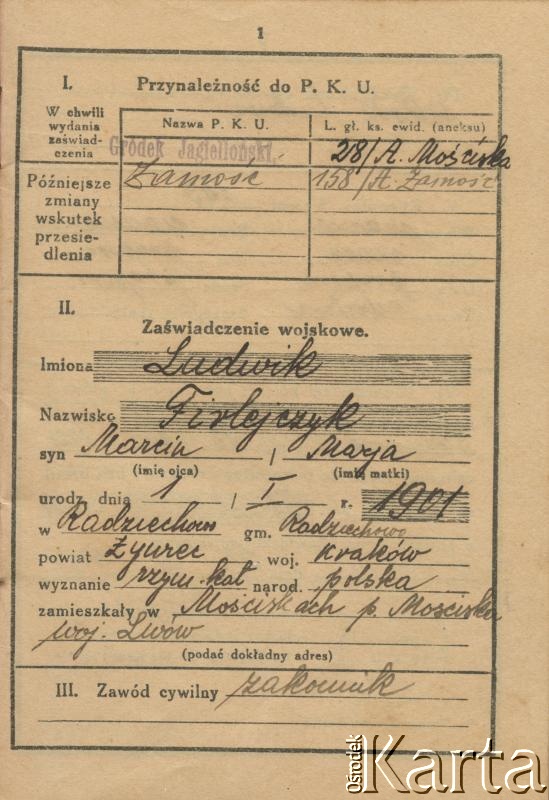 1
I. Przynależność do P. K. U.
W chwili wydania zaświadczenia
Nazwa P. K. U. L. gł. ks. ewid. (aneksu)
Gródek Jagielloński, 28/A. Mościska
Późniejsze zmiany wskutek przesiedlenia
Zamość 158/A. Zamość
II.
Zaświadczenie wojskowe.
Imiona Ludwik
Nazwisko Firlejczyk
syn Marcin i Marja
(imię ojca) (imię matki)
urodz. dnia 1 / I r. 1901
w Radziechowo gm. Radziechowo
powiat Żywiec woj. Kraków
wyznanie rzym. kat narod. polska
zamieszkały w Mościskach p. Mościska
woj. Lwów
(podać dokładny adres)
III. Zawód cywilny zakonnik
Ośrodek Karta